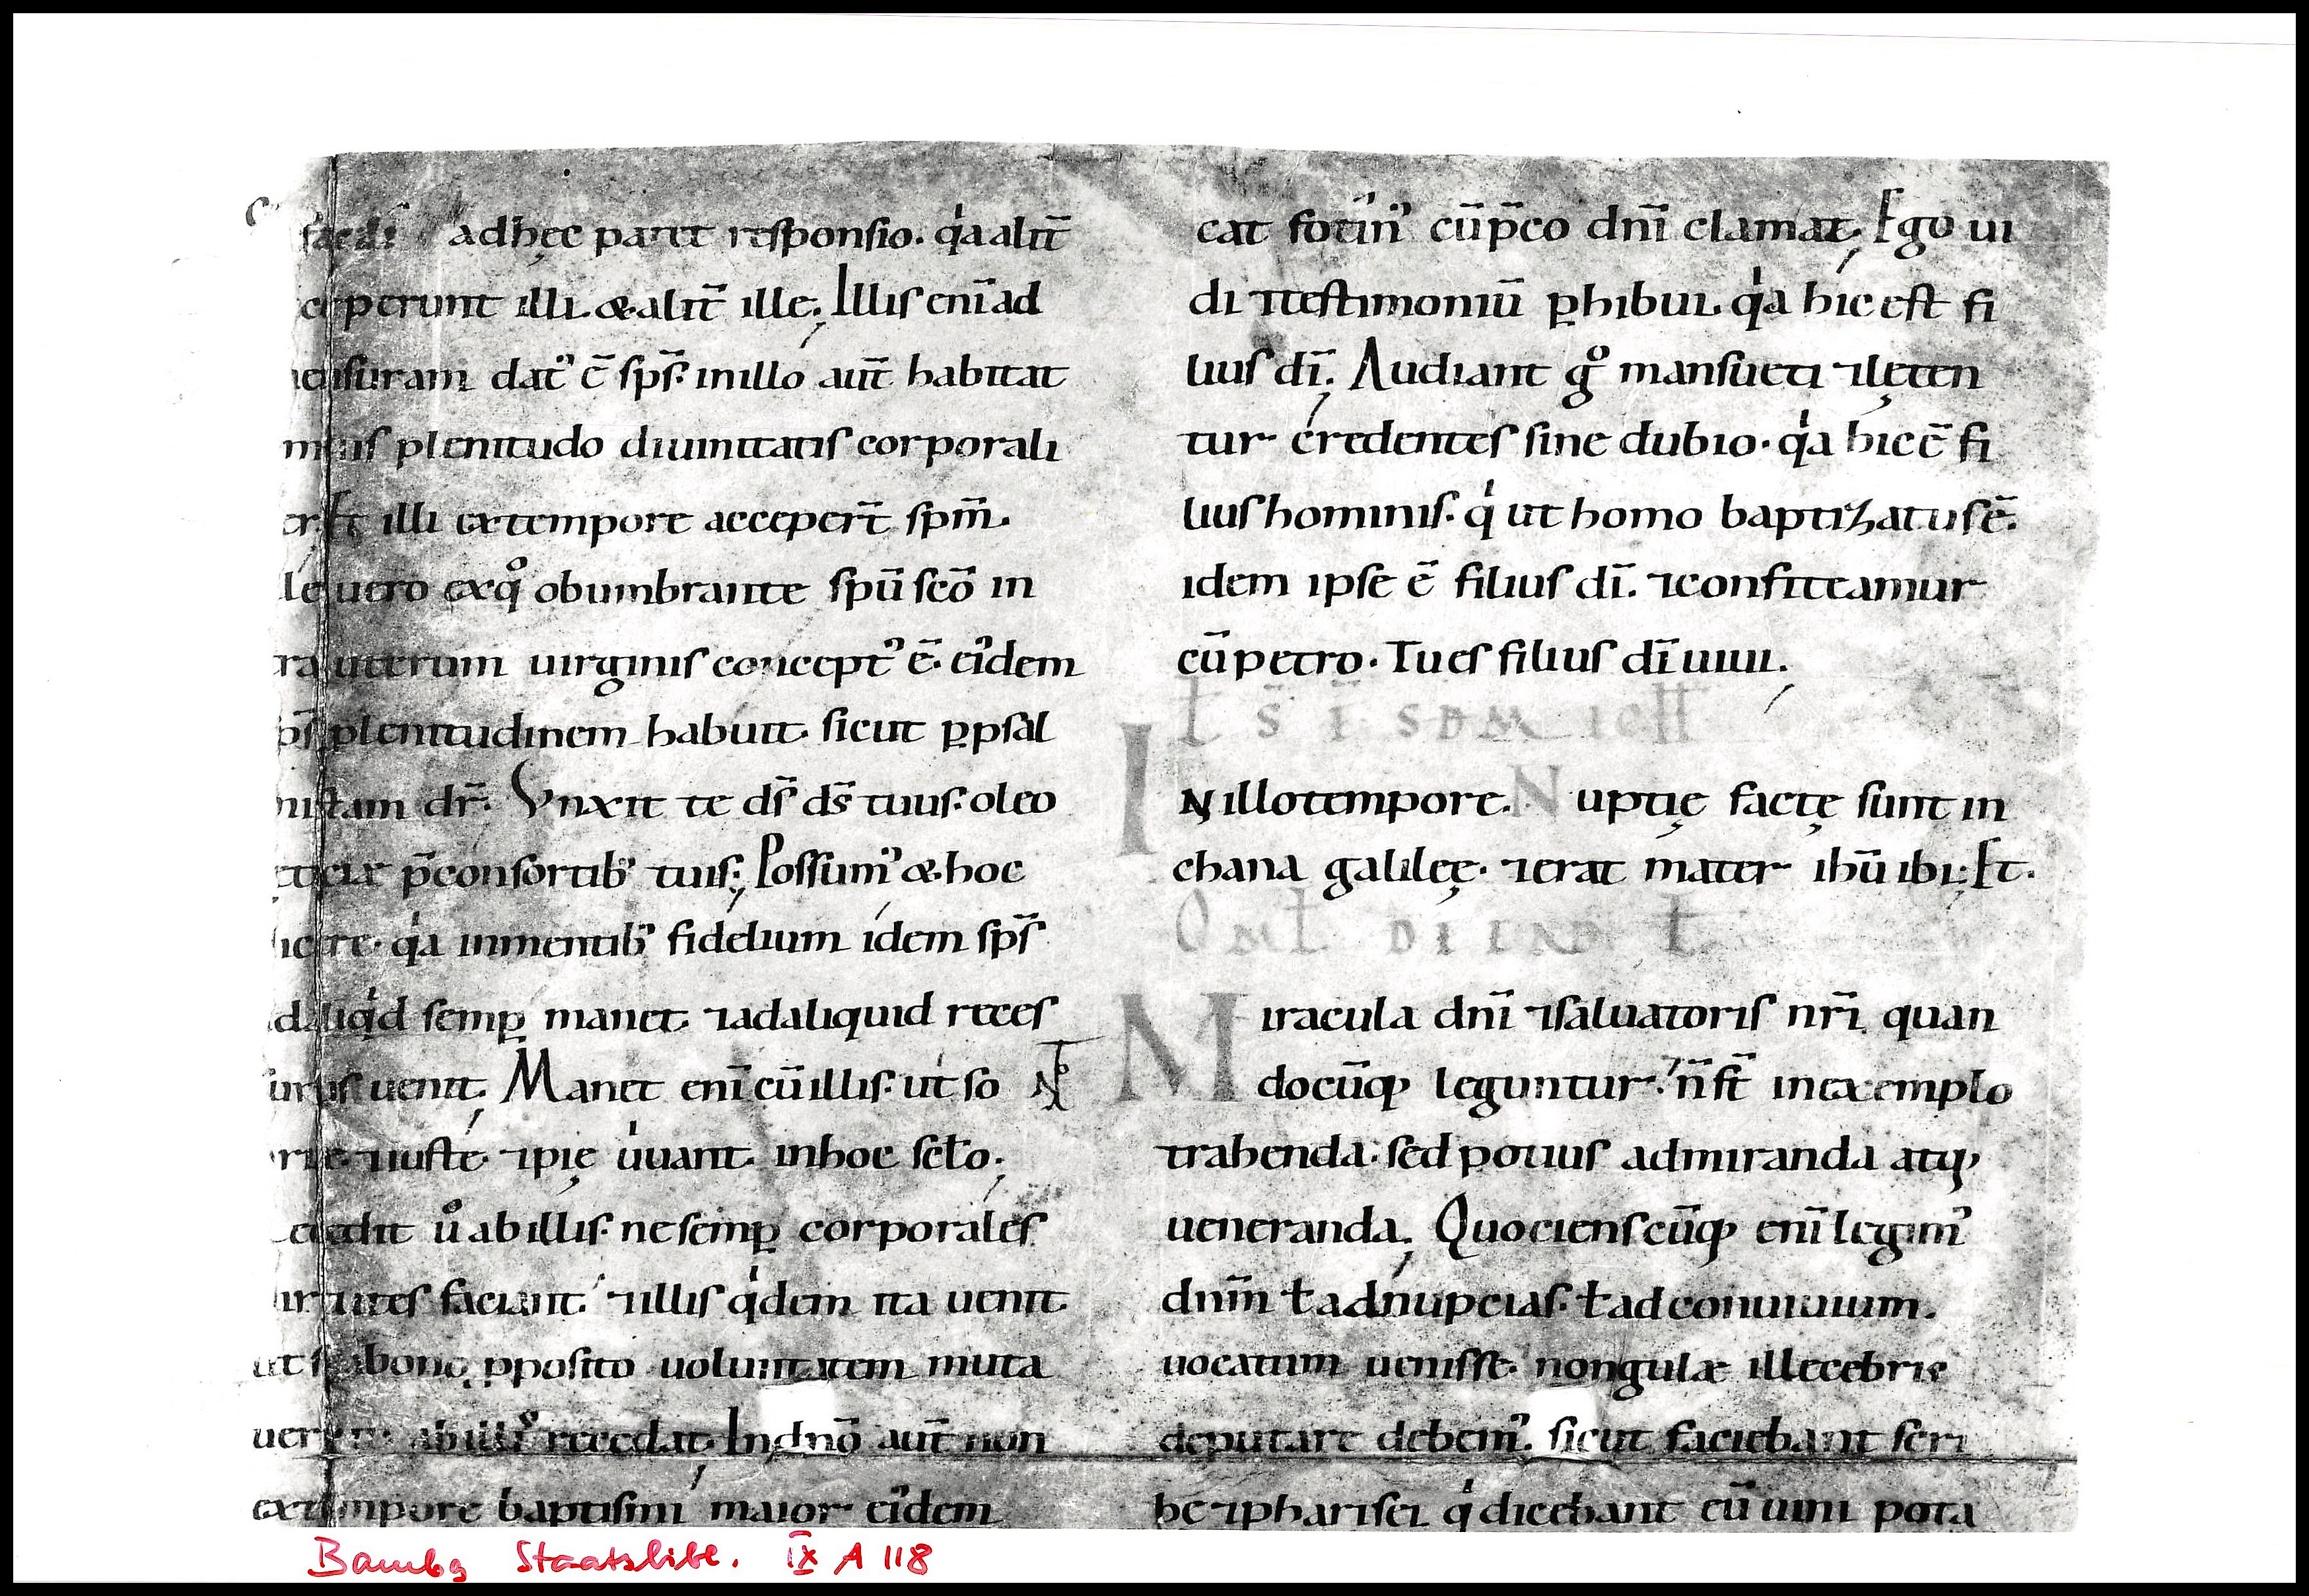 facil adhęc patet responsio. qͥa alit̄
ceperunt illi. & alit̄ ille. Illis eni̅ ad
mensuram datꝰ ē sp̄s. inillo aut̄ habitat
plenitudo diuinitatis corporali
ter. Et illi extempore acceper̄t sp̄m.
ille uero exqͦ obumbrante sp̄u sc̄o in
tra uterum uirginis conceptꝰ ē. eiꝰdem
sp̄s plenitudinem habuit. sicut ꝑpsal
mistam dr̄. Vnxit te ds̄ ds̄ tuus. oleo
lęticiæ p̄consortibꝰ tuis. Possumꝰ & hoc
dicere. qͥa inmentibꝰ fidelium idem sp̄s
adaliqͥd semꝑ manet. ⁊adaliquid reces
surus uenit. Manet eni̅ cu̅illis. ut so
brie. ⁊iuste. ⁊pię uiuant. inhoc sc̄lo.
recedit uͦ abillis. nesemꝑ corporales
uirtutes faciant. ⁊illis qͥdem ita uenit.
ut si abono ꝓposito uoluntatem muta
uerint. abillis recedat. Indn̄o aut̄ non
extempore baptismi maior eiꝰdem
cat fotinꝰ cu̅p̄co dn̄i clamat. Ego ui
di ⁊testimoniu̅ ꝑhibui. qͥa hic est fi
lius di̅. Audiant gͦ mansueti ⁊lęten
tur credentes sine dubio. qͥa hic ē fi
lius hominis. qͥ ut homo baptizatus ē.
idem ipse ē filius di̅. ⁊confiteamur
cu̅petro. Tu es filius di̅ uiui.
IN illotempore. Nuptię factę sunt in
chana galileę. ⁊erat mater ihu̅ ibi. Et.
Miracula dn̄i ⁊saluatoris nr̄i quan
docu̅qꝫ leguntur. n̄ st̄ inexemplo
trahenda. sed potius admiranda atqꝫ
ueneranda. Quocienscu̅qꝫ eni̅ legimꝰ
dn̄m ł adnupcias. ł adconuiuium.
uocatum uenisse. nongulæ illecebris
deputare debemꝰ. sicut faciebant scri
bę ⁊pharisei qͥ dicebant eu̅ uini pota
Bambg Staatsbibl. IX A 118